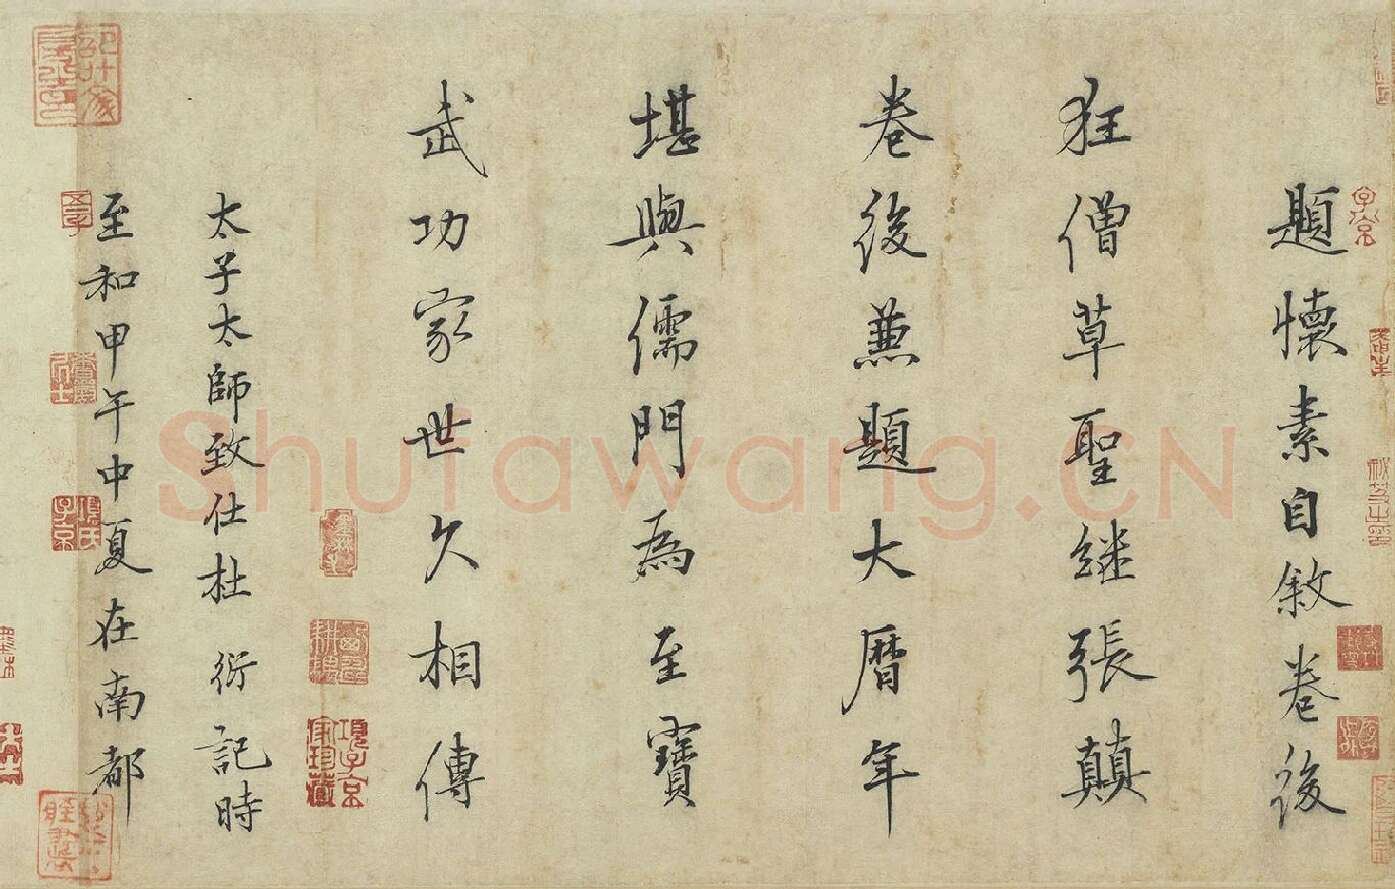 題懷素自敘卷後
狂僧草聖繼張顛
卷後兼題大曆年
堪與儒門為至寶
武功家世久相傳
太子太師致仕杜衍記時
至和甲午中夏在南都
shufawang.cn